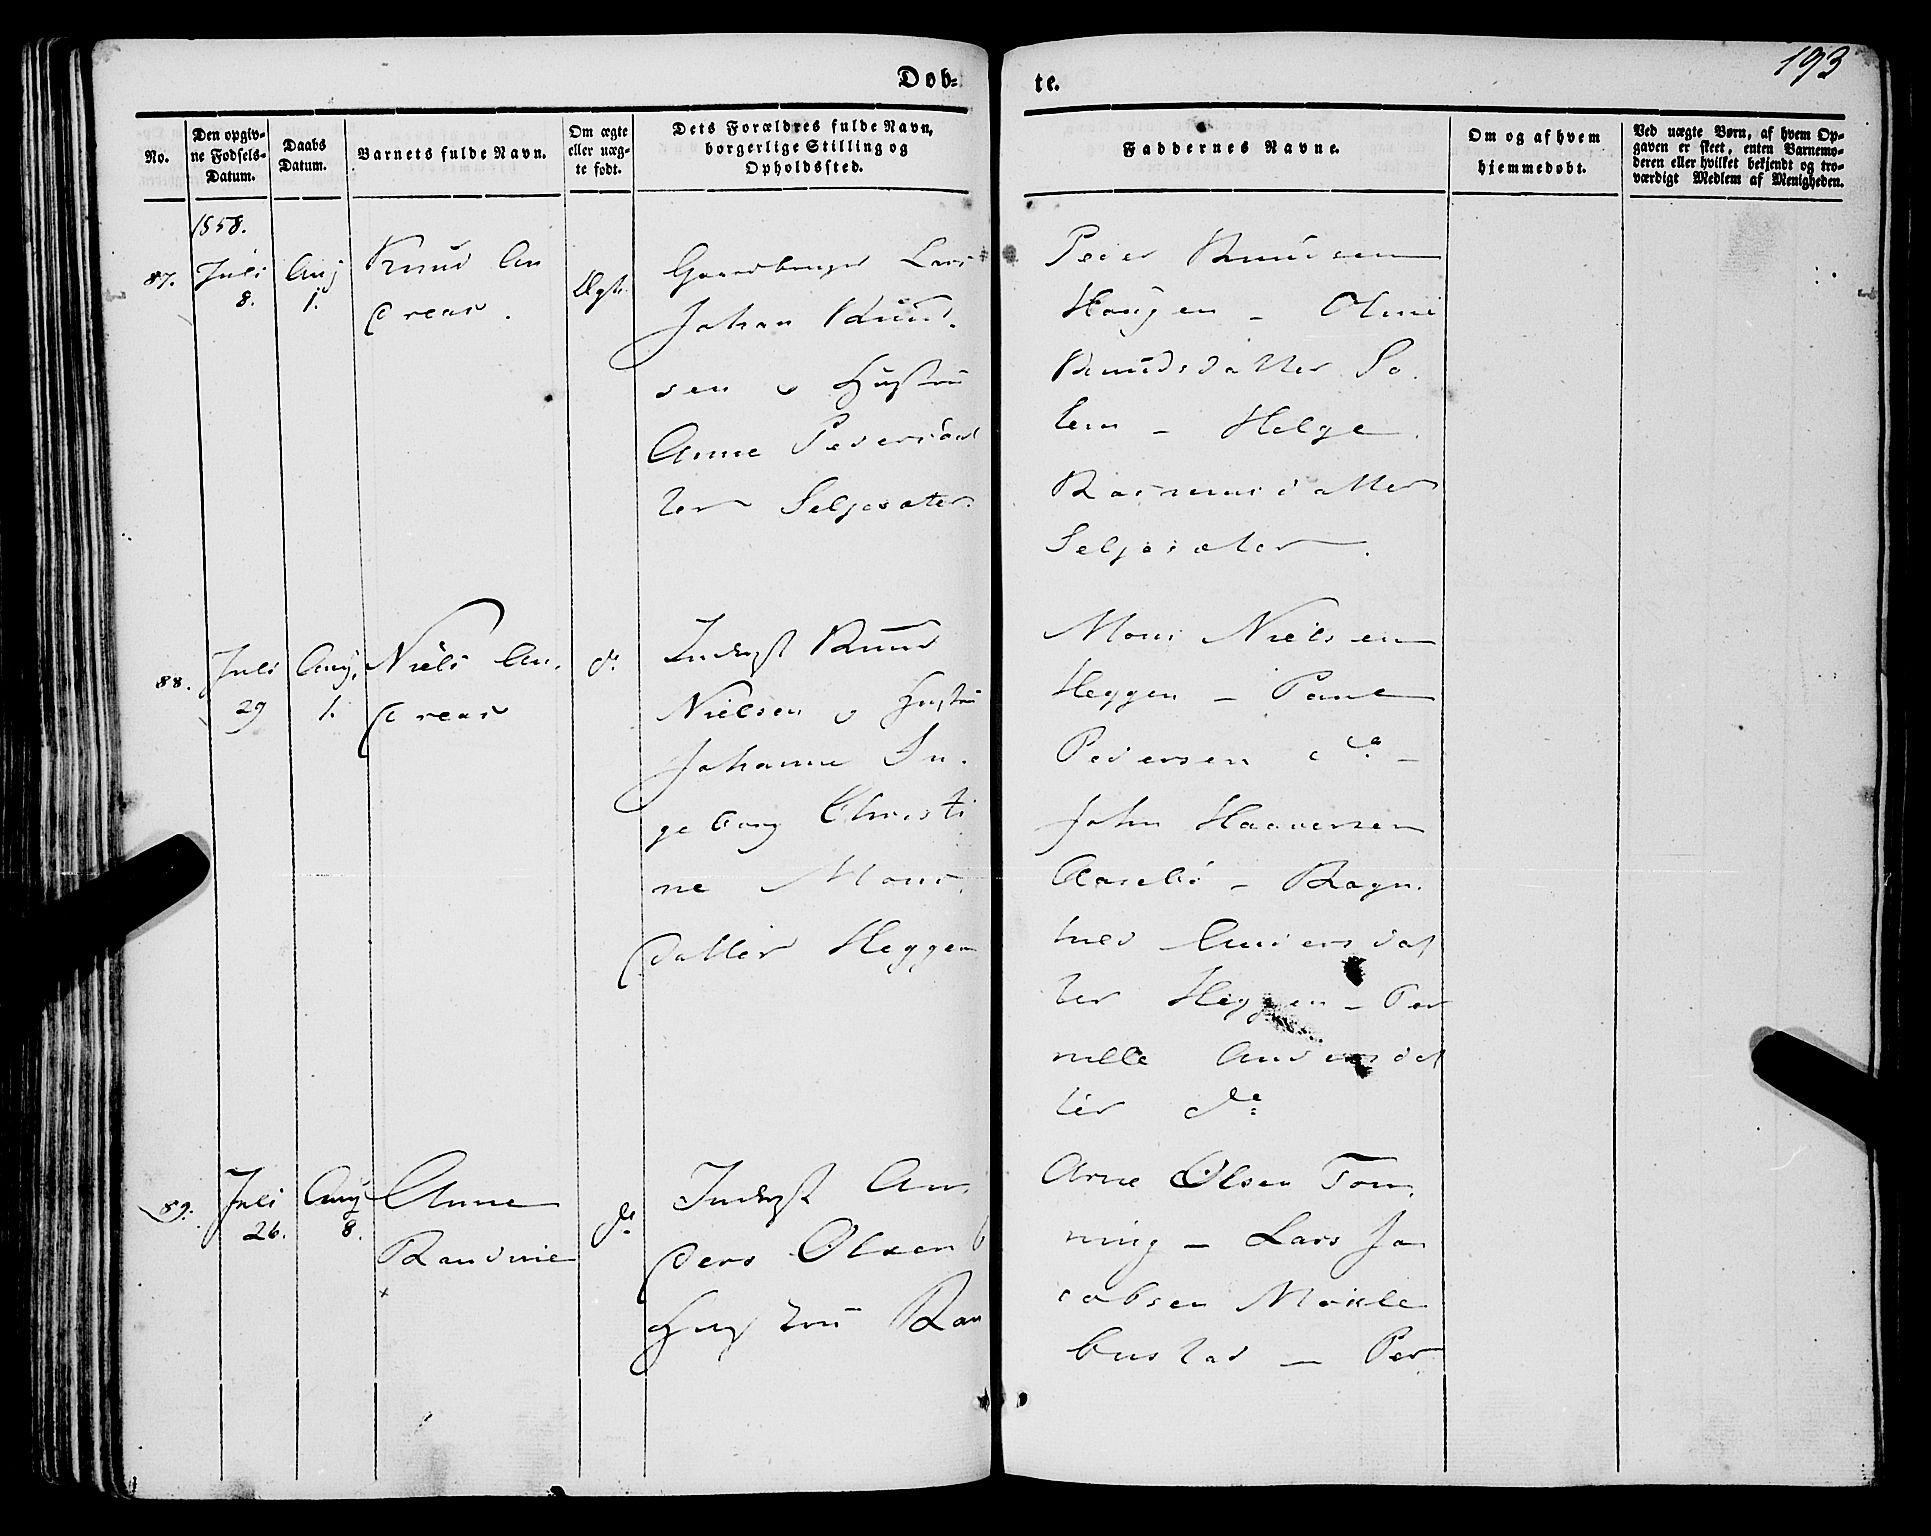 Dob-
te.
193
No.
Den opgiv-
ne Fodsels-
Datum.
Daabs
Datum.
Barnets fulde Navn.
Om ægte
eller uæg-
te fodt.
Dets Forældres fulde Navn,
borgerlige Stilling og
Opholdssted.
Faddernes Navne.
Om og af hvem
hjemmedobt.
Ved uægte Børn, af hvem Op-
gaven er skeet, enten Barnemo-
deren eller hvilket bekjendt og tro-
værdigt Medlem af Menigheden.
1858.
87.
Juli
8.
Aug
1.
Knud An
dreas.
Ægte
Gaardbruger Lars
Johan Knud-
sen & Hustru
Anne Pedersdat
ter Seljesæter.
Peder Knudsen
Haugen - Oline
Knudsdatter So-
lem - Helge
Rasmusdatter
Seljesæter.
88.
Juli
29
Aug.
1.
Niels An-
dreas
do
Inderst Knud
Nielsen & Hustru
Johanne In-
geborg Christi
ne Mons-
datter Heggen
Mons Nielsen
Heggen - Paul
Pedersen do -
John Haaversen
Aasebö - Ragn-
hild Andersdat
ter Heggen - Per
nille Andersdat
ter do
89.
Juli
26.
Aug
8.
Anne
Randine
x
do
Inderst An-
ders Olsen &
Hustru Ran
Arne Olsen Tom-
ning - Lars Ja
cobsen Mækle
bustad - Per